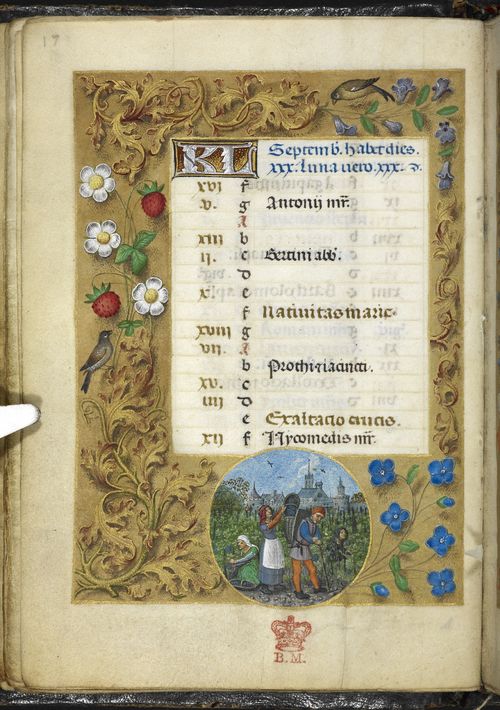 17
KL Septemb. habet dies.
xxx. luna vero. xxx.
xvi f
v. g Antonii mr̃.
A
xiii b
ii. c Bertini abb̃.
d
x. e
f Nativitas marie.
xviii g
vii. A
b Prothi et iacincti.
xv. c
iiii d
e Exaltacio crucis.
xii f Nycomedis mr̃.
B.M.